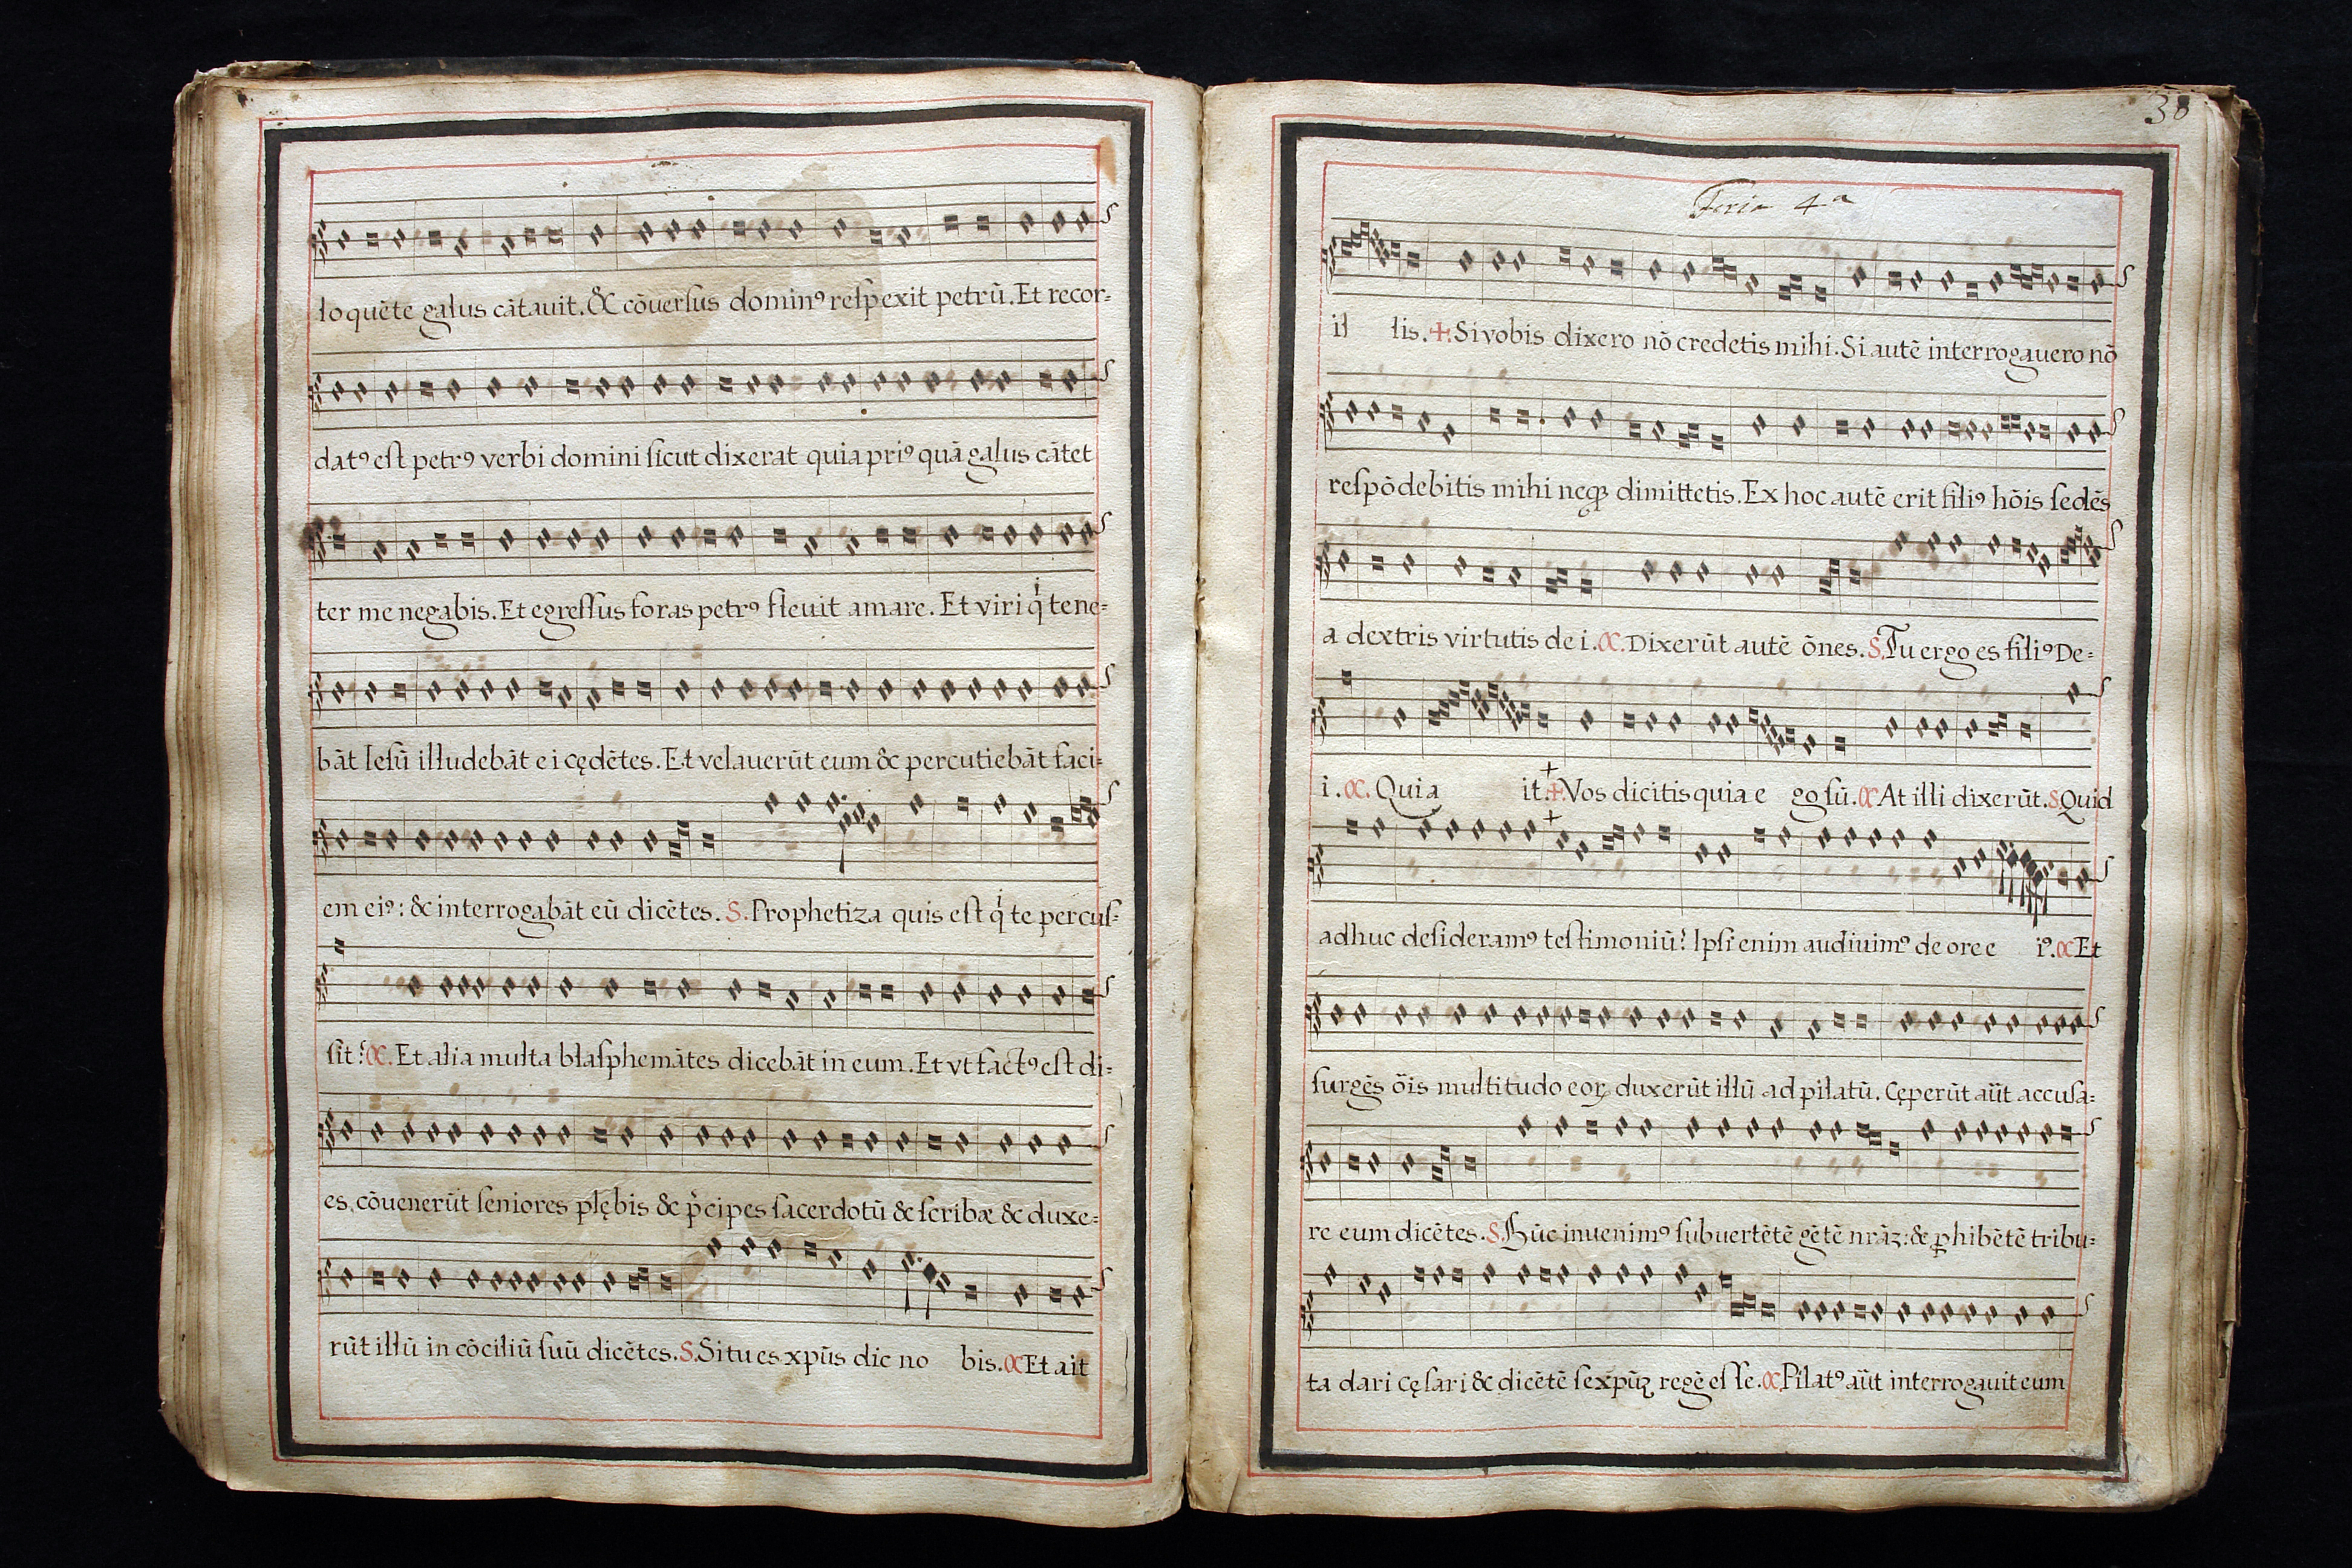 loquēte gallus cātauit. & cōuersus dominꝰ respexit petrū. Et recor=
datꝰ est petrꝰ verbi domini sicut dixerat quia priꝰ quā gallus cātet
ter me negabis. Et egressus foras petrꝰ fleuit amare. Et viri q̇ tene=
bāt Iesū illudebāt ei cędētes. Et velauerūt eum & percutiebāt faci=
em eiꝰ: & interrogabāt eū dicētes. S. Prophetiza quis est q̇ te percus=
sit? C. Et alia multa blasphemātes dicebāt in eum. Et vt factꝰ est di=
es, cōuenerūt seniores plębis & p̄cipes sacerdotū & scribæ & duxe=
rūt illū in cōciliū suū dicētes. S. Si tu es xpūs dic nobis. C Et ait
38
Feria 4ª
illis. +. Si vobis dixero nō credetis mihi. Si autē interrogauero nō
respōdebitis mihi neqꝫ dimittetis. Ex hoc autē erit filiꝰ hōis sedēs
a dextris virtutis dei. C. Dixerūt autē ōnes. S. Tu ergo es filiꝰ De=
i. C. Qui ait. +. Vos dicitis quia ego sū. C At illi dixerūt. S. Quid
adhuc desideramꝰ testimoniū? Ipsi enim audiuimꝰ de ore eiꝰ. C Et
surgēs ōis multitudo eoꝝ duxerūt illū ad pilatū. Cęperūt aūt accusa=
re eum dicētes. S. Hūc inuenimꝰ subuertētē gētē nrāꝫ: & ꝓhibētē tribu=
ta dari cęsari & dicētē se xpūꝫ regē esse. C Pilatꝰ aūt interrogauit eum